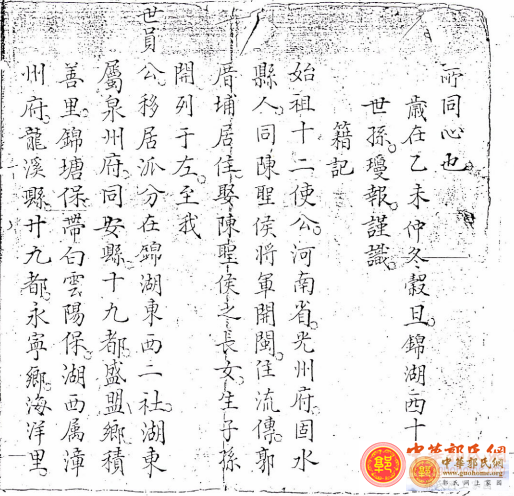 所同心也
歲在乙未仲冬穀旦。錦湖西十
世孫瓊報謹識。
籍記
始祖十二使公。河南省光州府。固水
縣人。同陳聖侯將軍開閩。住流傳。郭
厝埔居住。娶陳聖侯之長女。生子孫
開列于左。至我
世員公。移居派分在錦湖東西二社。湖東
屬泉州府。同安縣。十九都。盛盟鄉。積
善里。錦塘保。帶白雲陽保。湖西属漳
州府。龍溪縣。廿九都。永寧鄉。海洋里。
中華郭氏網
www.guohome.org